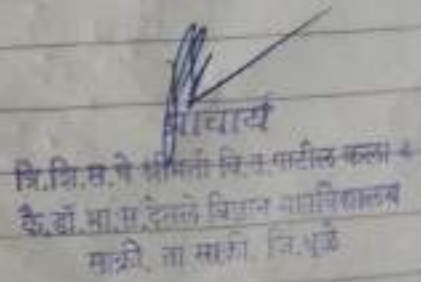 प्राचार्य
वि.वि.स.चे श्रीमती वि.न.पाटील कला व
कै.डॉ.भा.स.देसले विज्ञान महाविद्यालय
साक्री, ता.साक्री, जि.धुळे